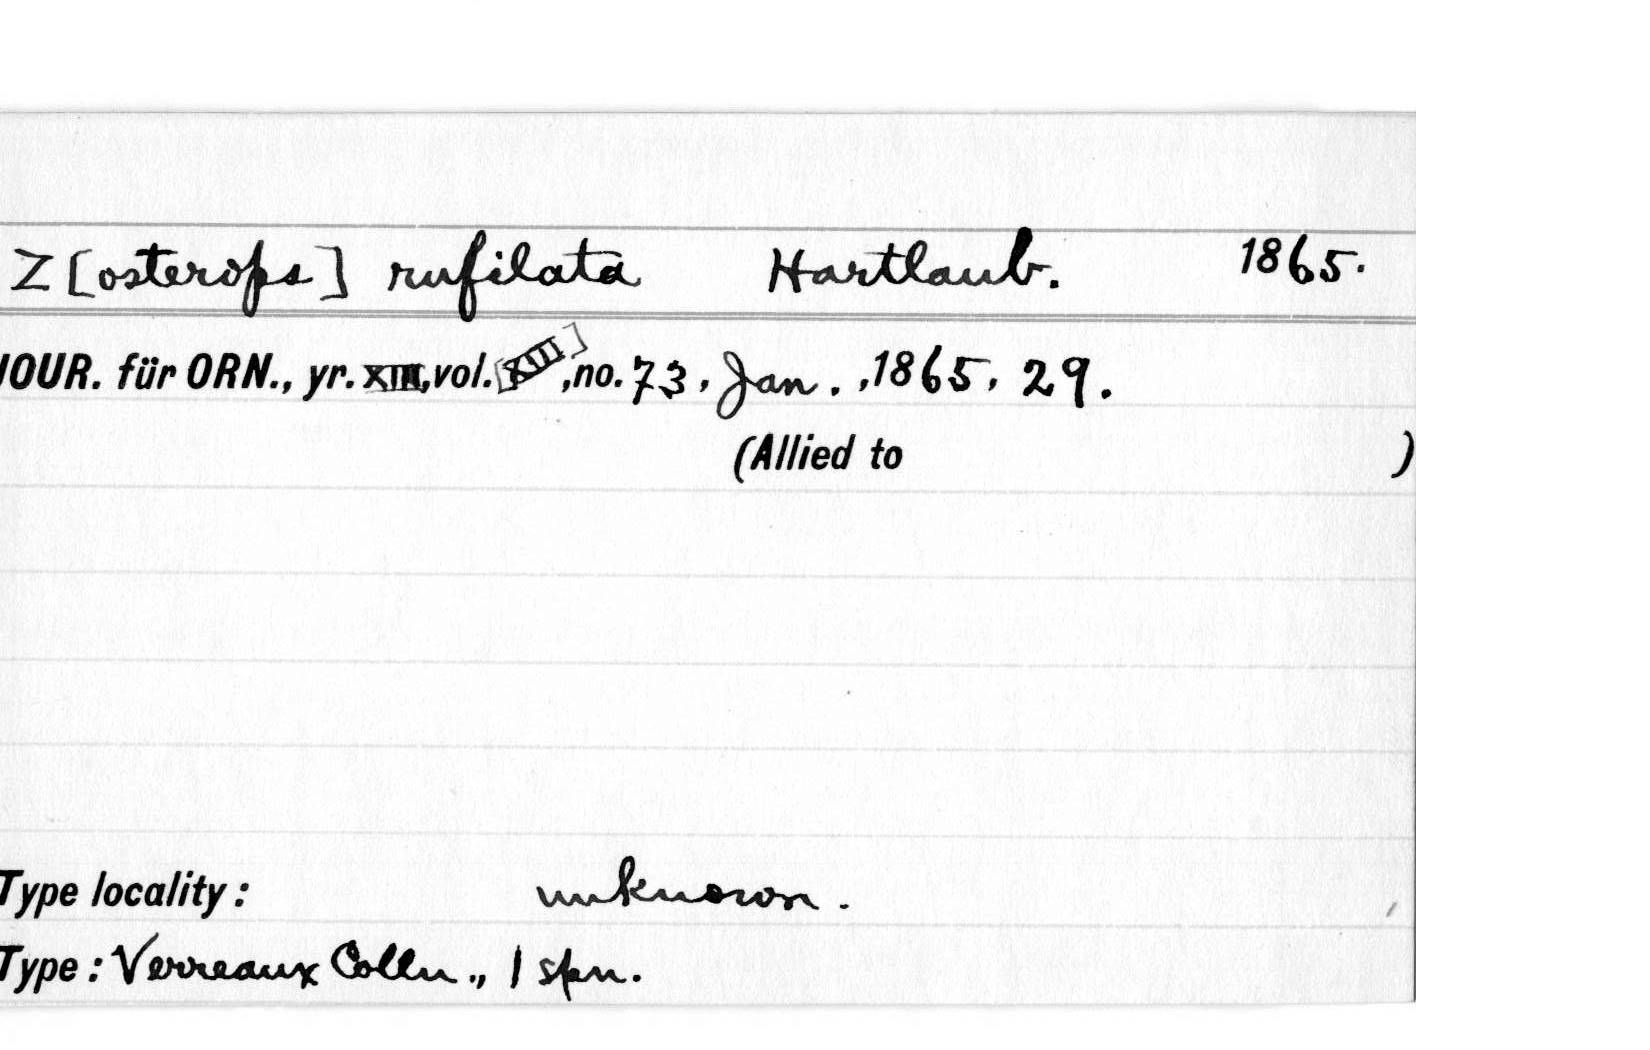 Z[osterops] rufilata Hartlaub. 1865.
JOUR. für ORN., yr. XIII, vol. [XIII], no. 73, Jan., 1865, 29.
(Allied to )
Type locality: unknown.
Type: Verreaux Colln., 1 spn.